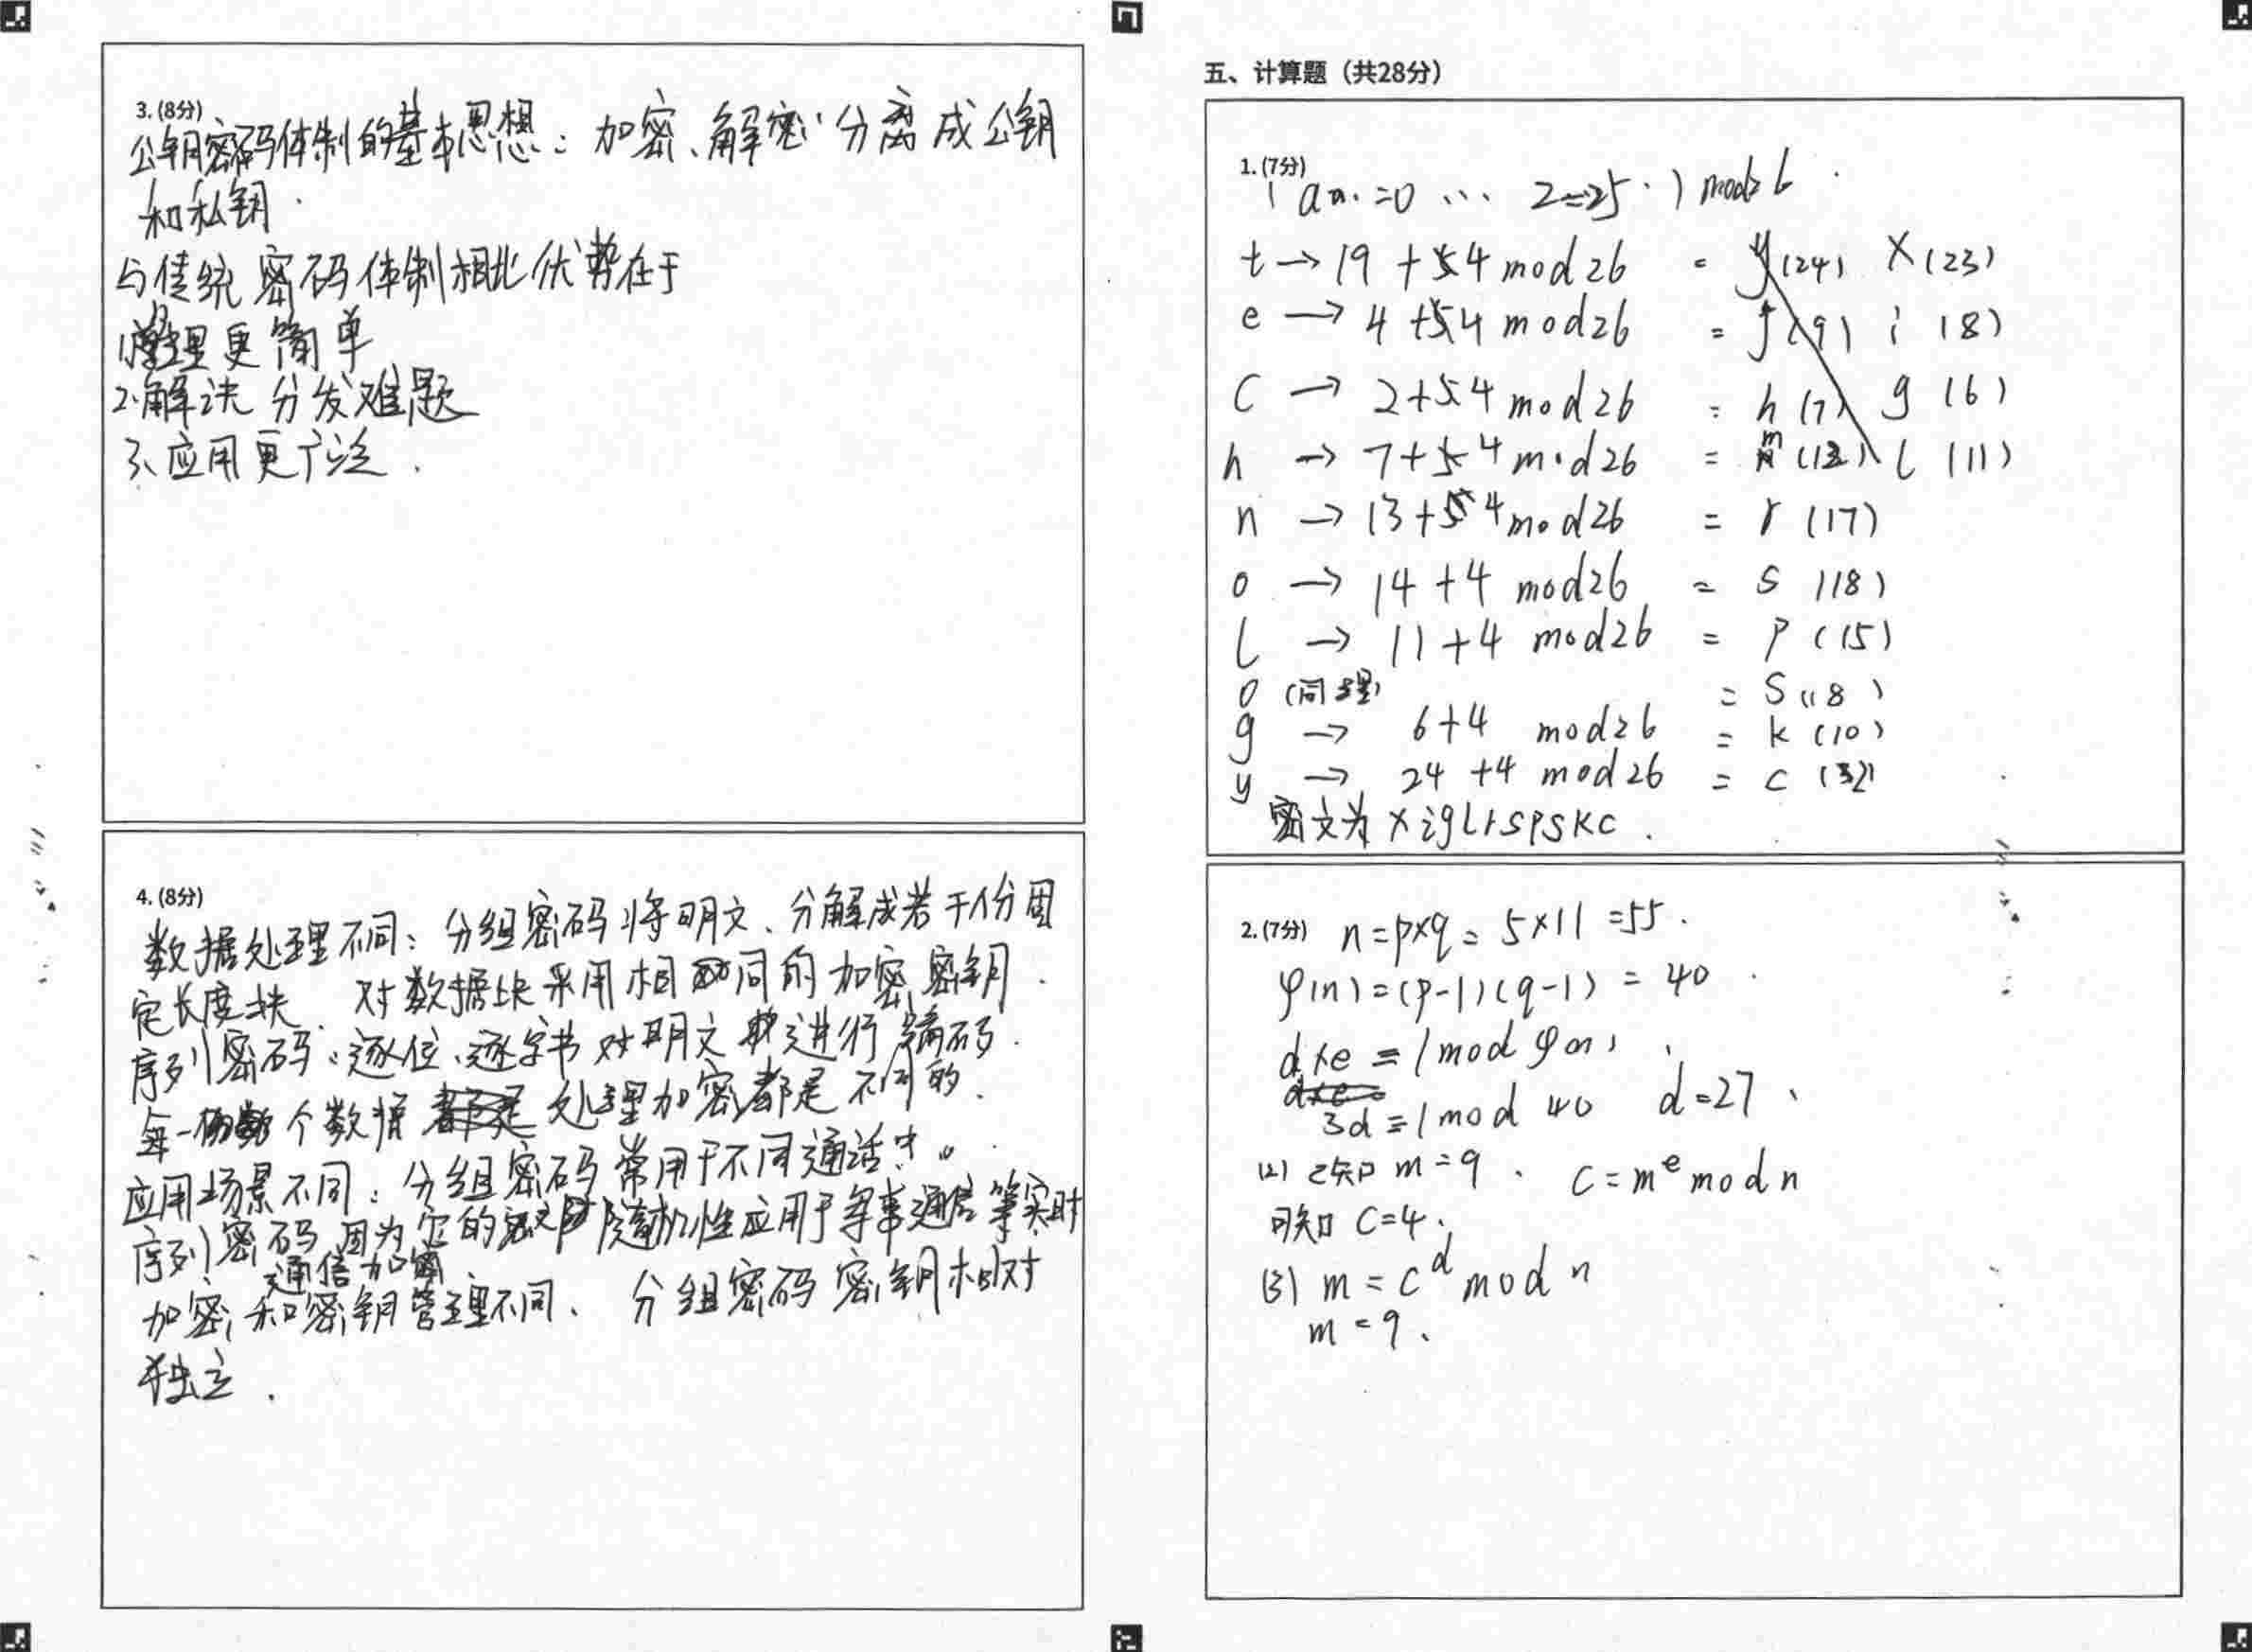 3. (8分)
公钥密码体制的基本思想：加密、解密分离成公钥
和私钥.
与传统密码体制相比优势在于
1.管理更简单
2.解决分发难题
3、应用更广泛.
4. (8分)
数据处理不同：分组密码将明文、分解成若干份固
定长度块. 对数据块采用相同的加密密钥.
序列密码：逐位、逐字节对明文进行编码.
每一个数据处理加密都是不同的.
应用场景不同：分组密码常用于不同通话中。
序列密码因为它的随机性应用于军事通信等实时
通信加密
加密和密钥管理不同、分组密码密钥相对
独立.
五、计算题（共28分）
1. (7分)
=0 ... Z=25 ) mod 26
t → 19 + 4 mod 26 = X (23)
e → 4 + 4 mod 26 = i (8)
c → 2 + 4 mod 26 = g (6)
h → 7 + 4 mod 26 = l (11)
n → 13 + 4 mod 26 = r (17)
o → 14 + 4 mod 26 = s (18)
l → 11 + 4 mod 26 = p (15)
o (同理) = s (18)
g → 6 + 4 mod 26 = k (10)
y → 24 + 4 mod 26 = c (2)
密文为 xiglrspskc.
2. (7分) n = p×q = 5×11 = 55.
φ(n) = (p-1)(q-1) = 40.
d×e ≡ 1 mod φ(n),
3d ≡ 1 mod 40 d=27、
(2) 已知 m=9、 c = m^e mod n
可知 c=4.
(3) m = c^d mod n
m = 9、